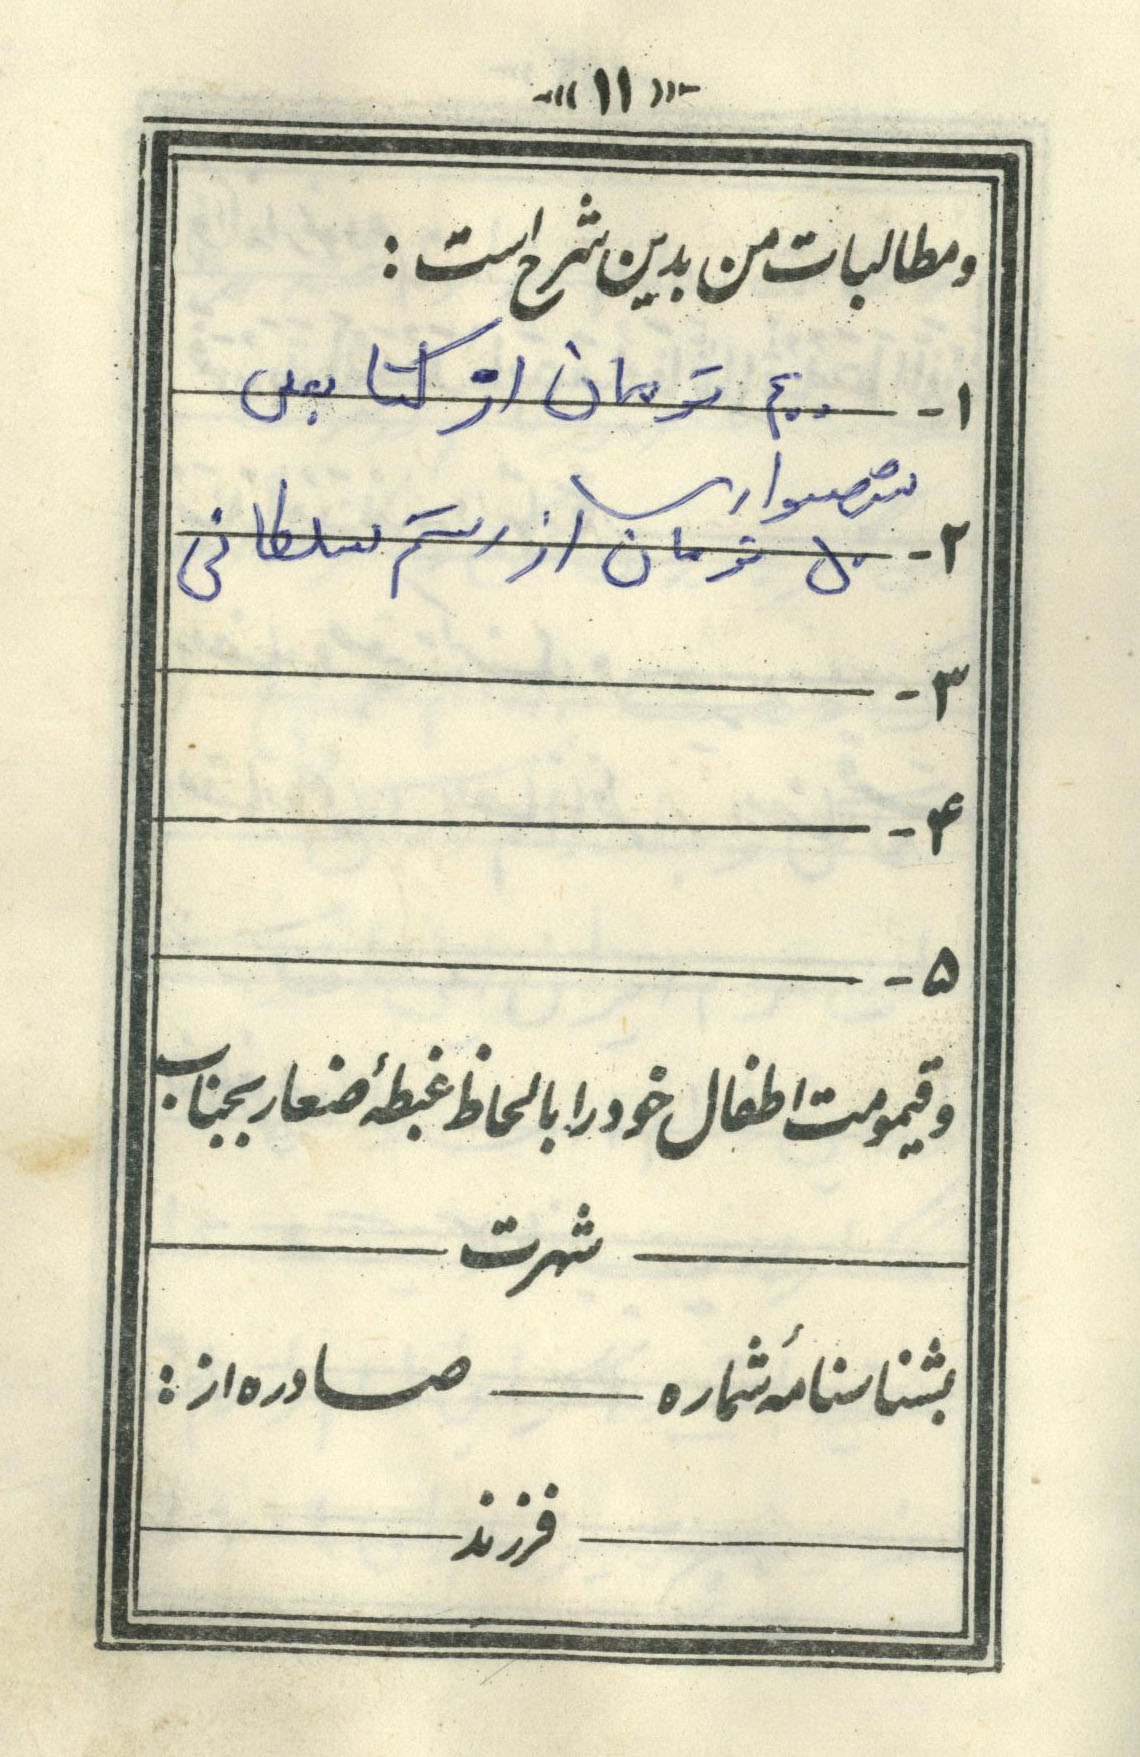 «۱۱»
و مطالبات من بدین شرح است :
۱- تومان از
۲- تومان از رستم سلطانی
۳-
۴-
۵-
و قیمومت اطفال خود را با لحاظ غبطهٔ صغار بجناب
شهرت
بشناسنامهٔ شماره صادره از :
فرزند